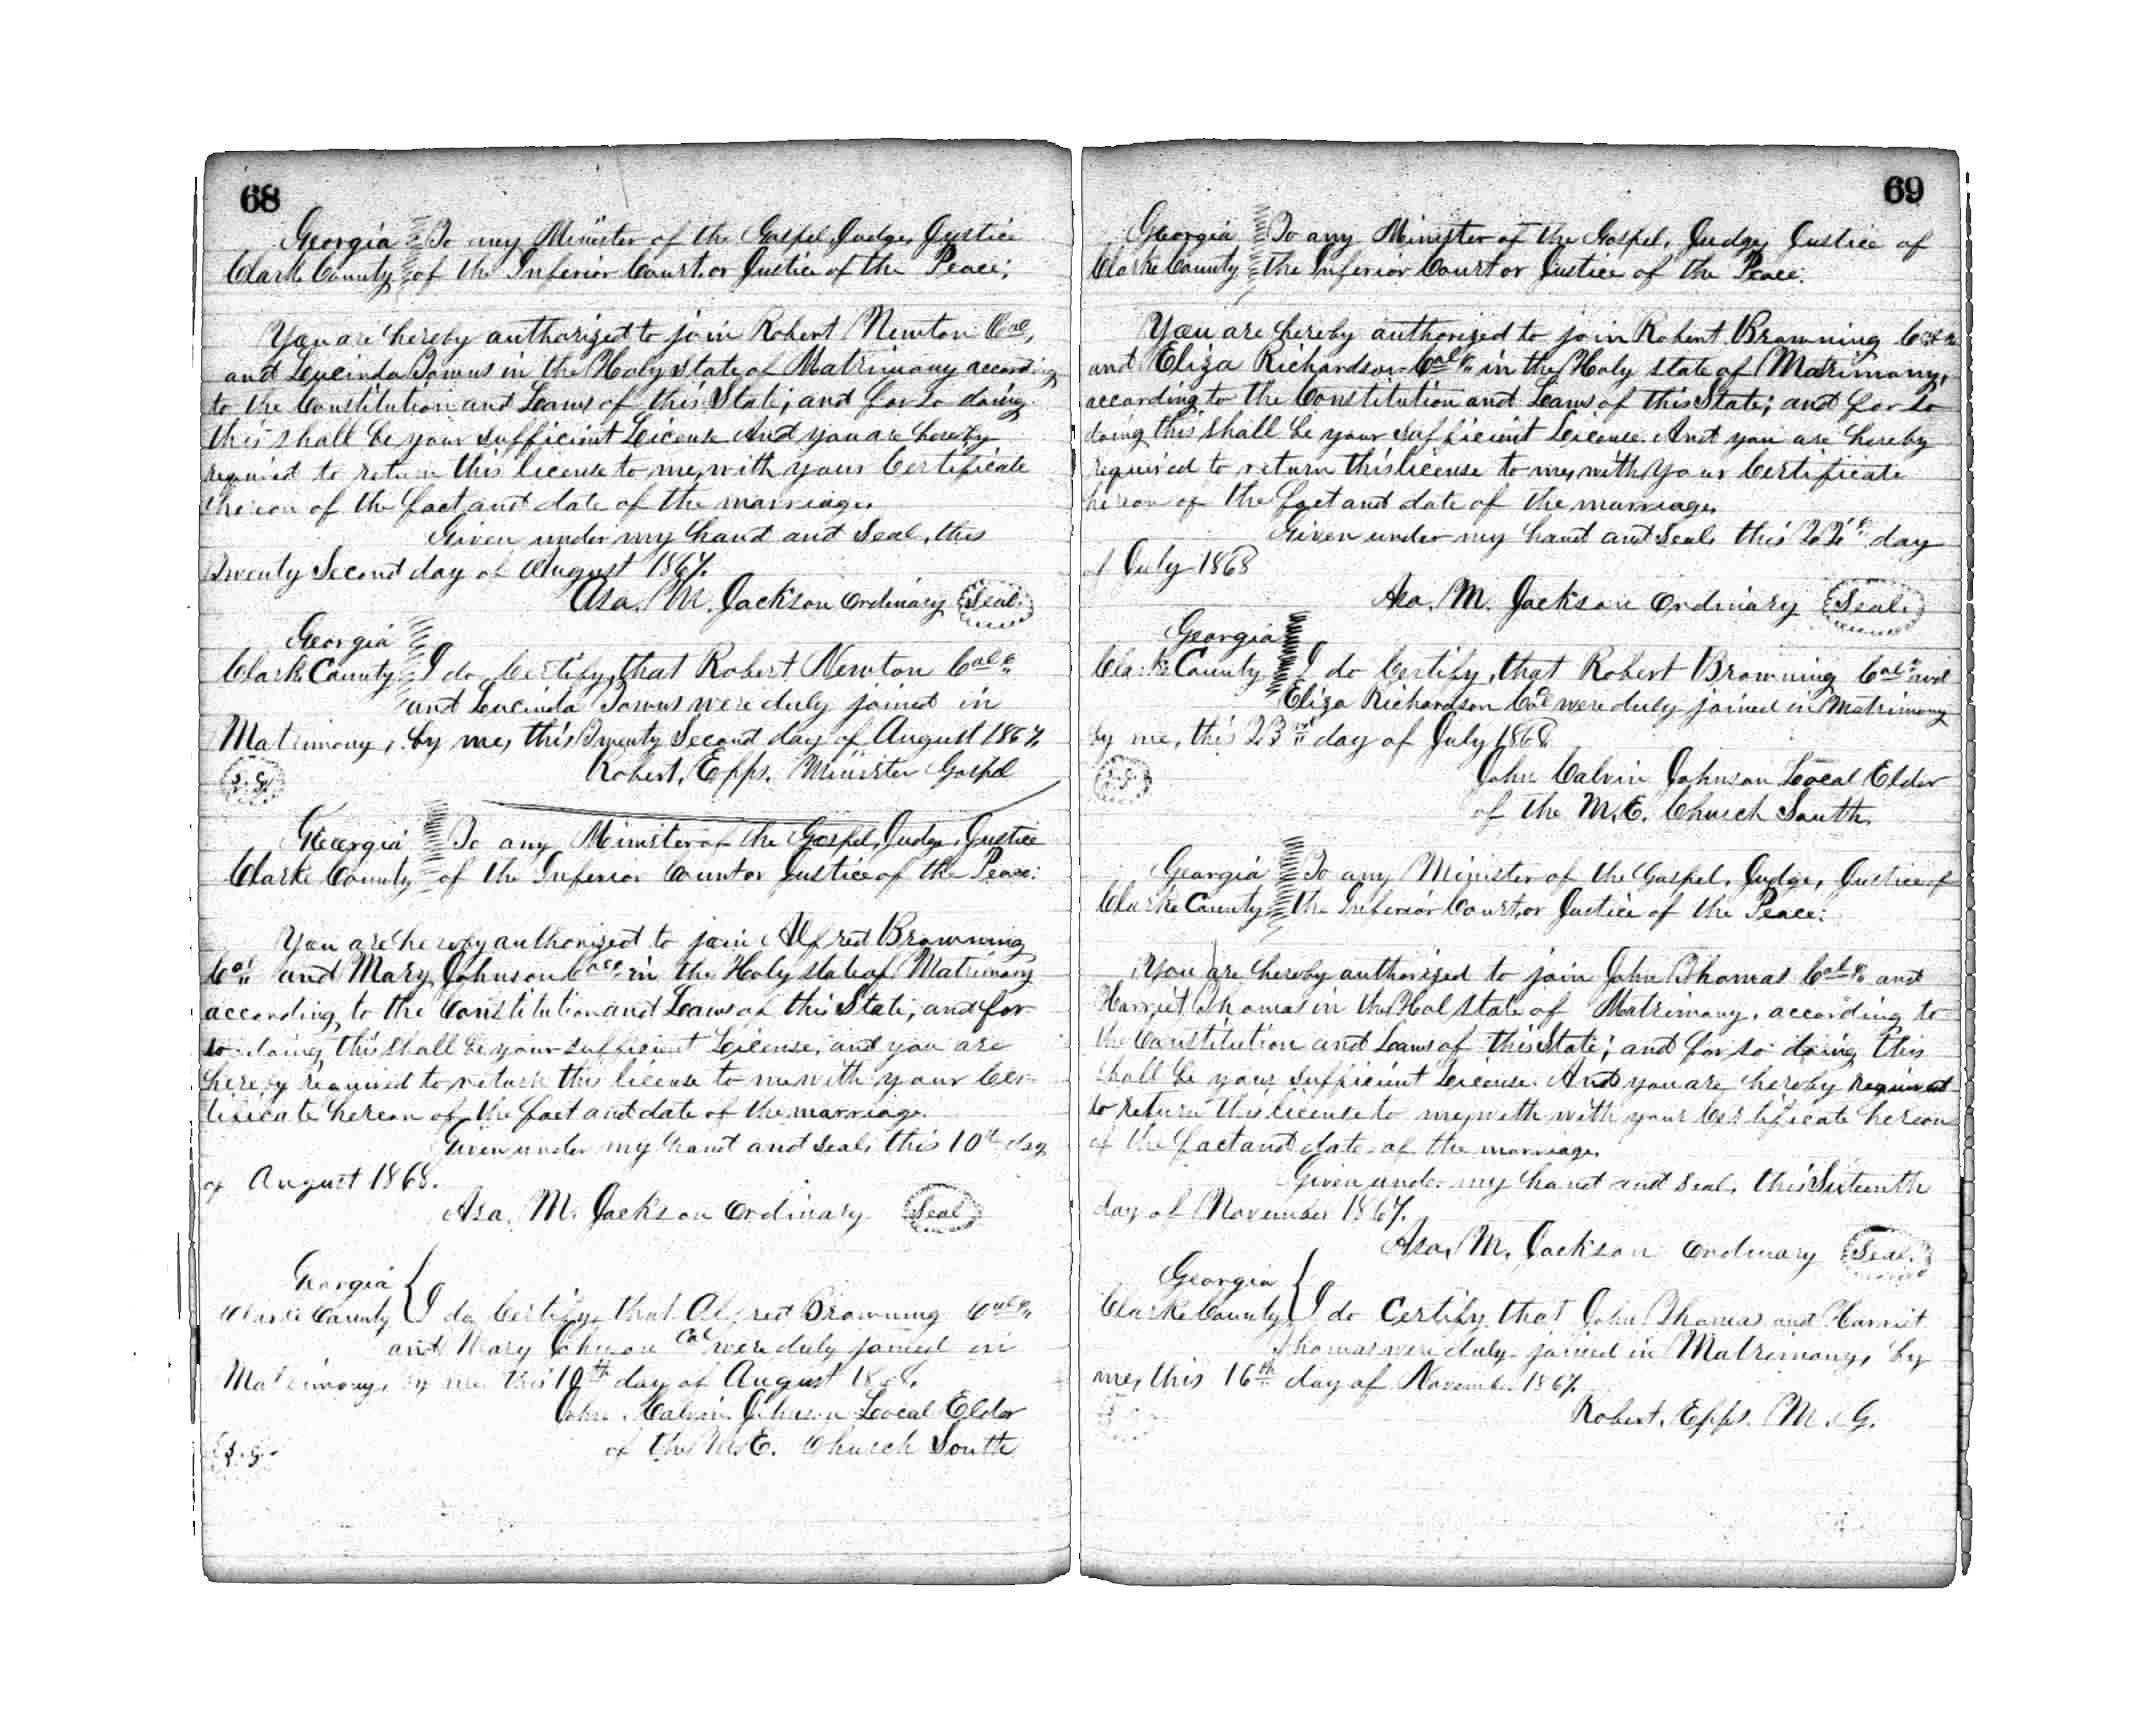 68
Georgia To any Minister of the Gospel, Judge, Justice
Clarke County of the Inferior Court, or Justice of the Peace:
You are hereby authorized to join Robert Newton Col,
and Lucinda Towns in the Holy state of Matrimony according
to the Constitution and Laws of this State; and for so doing
this shall be your sufficient License And you are hereby
required to return this license to me, with your Certificate
hereon of the fact and date of the marriage.
Given under my hand and Seal, this
Twenty Second day of August 1867.
Asa. M. Jackson Ordinary Seal.
Georgia
Clarke County I do Certify, that Robert Newton Col
and Lucinda Towns were duly joined in
Matrimony, by me, this Twenty Second day of August 1867.
Robert, Epps. Minister Gospel
Georgia To any Minister of the Gospel, Judge, Justice
Clarke County of the Inferior Court or Justice of the Peace:
You are hereby authorized to join Alfred Browning
Col and Mary Johnson Col in the Holy state of Matrimony
according to the Constitution and Laws of this State; and for
so doing this shall be your sufficient License, and you are
hereby required to return this license to me with your Cer-
tificate hereon of the fact and date of the marriage.
Given under my hand and seal, this 10th day
of August 1868.
Asa. M. Jackson Ordinary Seal
Georgia
Clarke County I do Certify, that Alfred Browning Col
and Mary Johnson Col were duly joined in
Matrimony, by me this 10th day of August 1868.
John Calvin Johnson Local Elder
of the M.E. Church South
69
Georgia To any Minister of the Gospel, Judge, Justice of
Clarke County the Inferior Court or Justice of the Peace:
You are hereby authorized to join Robert Browning Col
and Eliza Richardson Col in the Holy state of Matrimony,
according to the Constitution and Laws of this State; and for so
doing this shall be your sufficient License. And you are hereby
required to return this license to me, with your Certificate
hereon of the fact and date of the marriage.
Given under my hand and Seal, this 22 day
of July 1868
Asa. M. Jackson Ordinary Seal.
Georgia
Clarke County I do Certify, that Robert Browning Col and
Eliza Richardson Col were duly joined in Matrimony
by me, this 23rd day of July 1868
John Calvin Johnson Local Elder
of the M.E. Church South.
Georgia To any Minister of the Gospel, Judge, Justice of
Clarke County the Inferior Court, or Justice of the Peace:
You are hereby authorized to join John Thomas Col and
Harriet Thomas in the Hol state of Matrimony, according to
the Constitution and Laws of this State; and for so doing this
shall be your sufficient License. And you are hereby required
to return this license to me, with with your Certificate hereon
of the fact and date of the marriage.
Given under my hand and seal, this Sixteenth
day of November 1867.
Asa. M. Jackson Ordinary Seal.
Georgia
Clarke County I do Certify that John Thomas and Harriet
Thomas were duly joined in Matrimony, by
me, this 16th day of November 1867.
Robert, Epps. M. G.